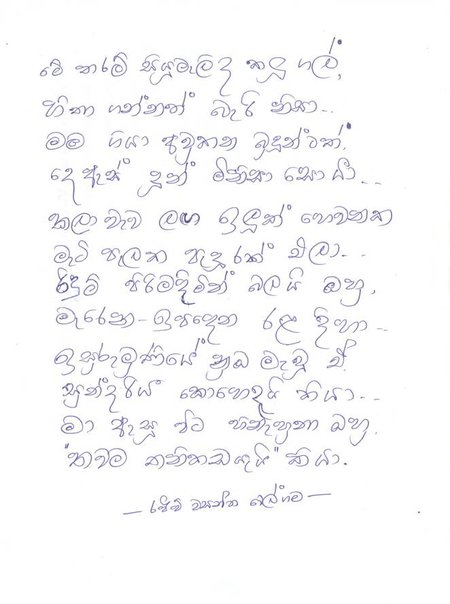 මේ තරම් සියුමැලි ද කළු ගල්,
හිතා ගන්නත් බැරි නිසා..
මම ගියා අවුකන ඉදුන්ටත්,
දෙ ඇස් දුන් මිනිසා සොයා...
කලා වැව ලඟ ඉලුක් හෙවනක
මැටි පැලක පැදුරක් එලා...
රිදුම් පිරිමදිමින් බලයි ඔහු,
මැරෙන - ඉපදෙන රළ දිහා...
ඉසුරුමුණියේ නුඹ මැවූ ඒ
සුන්දරිය කොහෙදැයි කියා...
මා ඇසූ විට හිනැහුනා ඔහු,
"තවම තනිකඩයැයි" කියා.
— රජිව් වසන්ත වෙල්ගම —